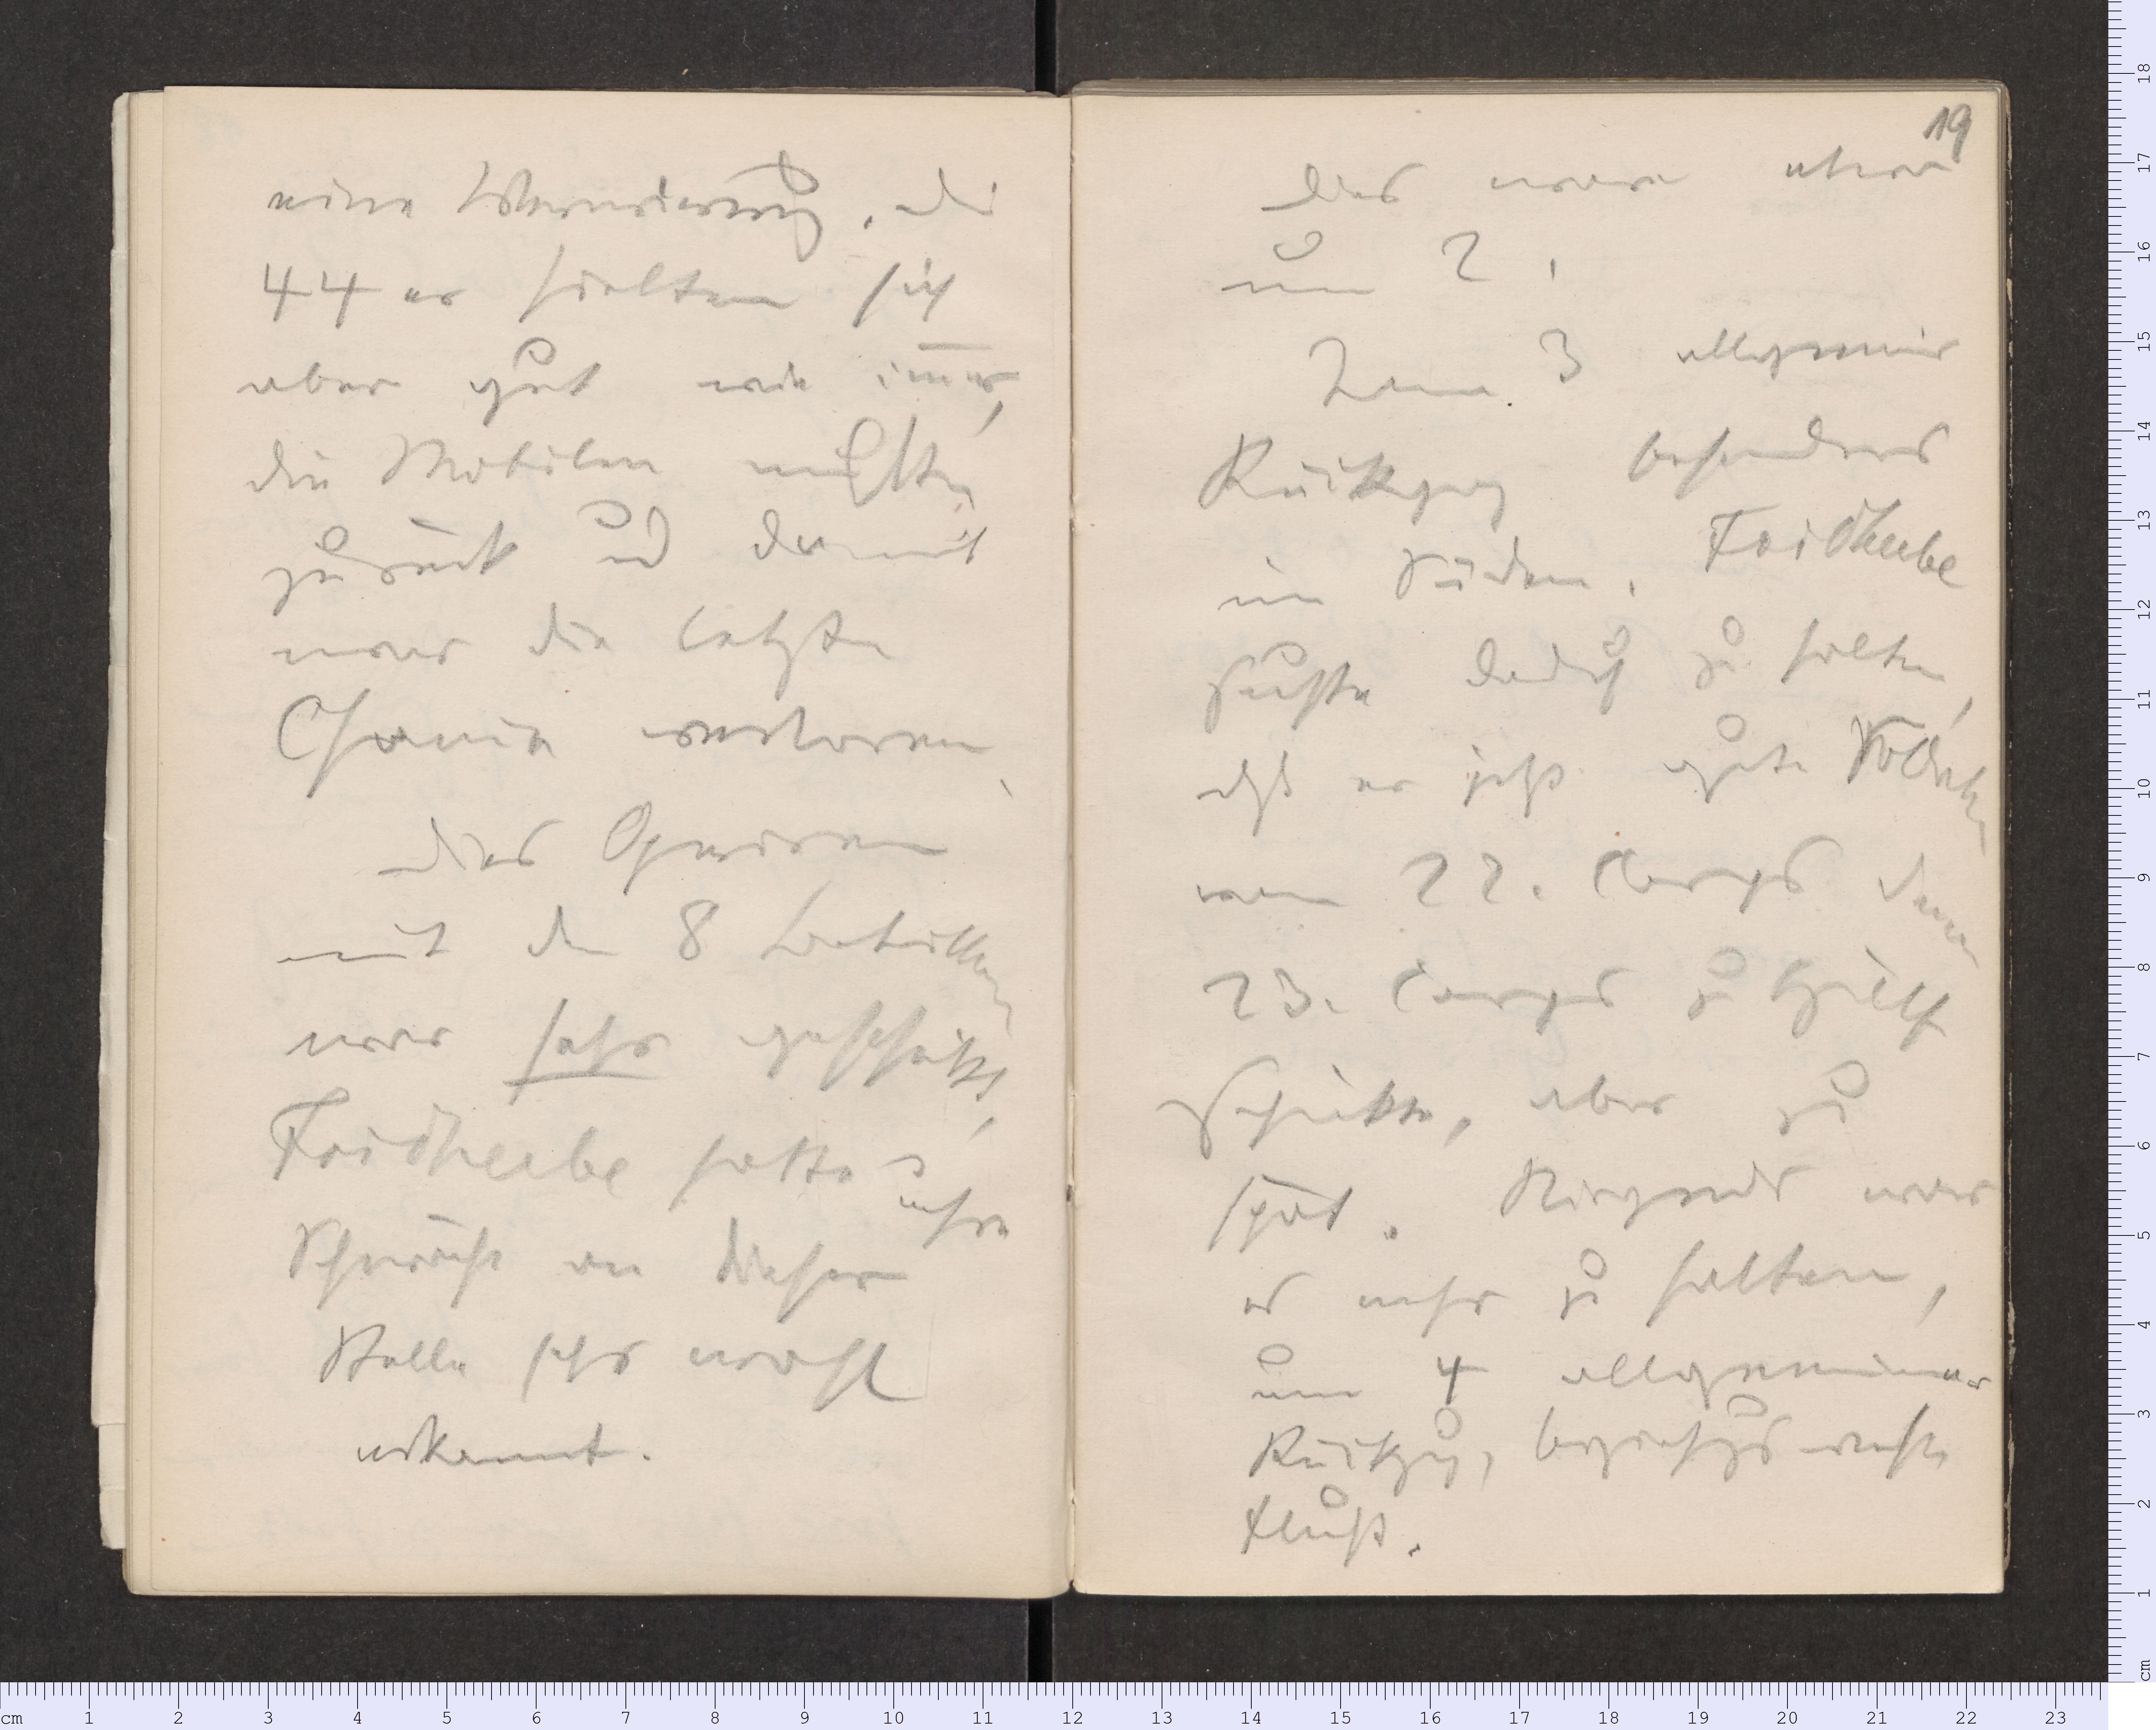 eine Überraschung, die
44er hielten sich
aber gut wie im̅er,
die Mobilen mußten
zurück und damit
war die letzte
Chance verloren.
Das Operiren
mit den 8 Bataillonen
war sehr geschickt,
Faidherbe hatte
seine
Schwäche an dieser
Stelle sehr wohl
erkannt.
19
Das war etwa
um 2.
Dann 3 allgemein
Rückgang besonders
im Süden. Faidherbe
suchte dadurch zu halten,
daß er jetzt gute Soldaten
vom 22. Corps dem
23. Corps zu Hülfe
schickte, aber zu
spät. Nirgends war
es mehr zu halten,
um 4 allgemeiner
Rückzug, beziehungsweise
Flucht.